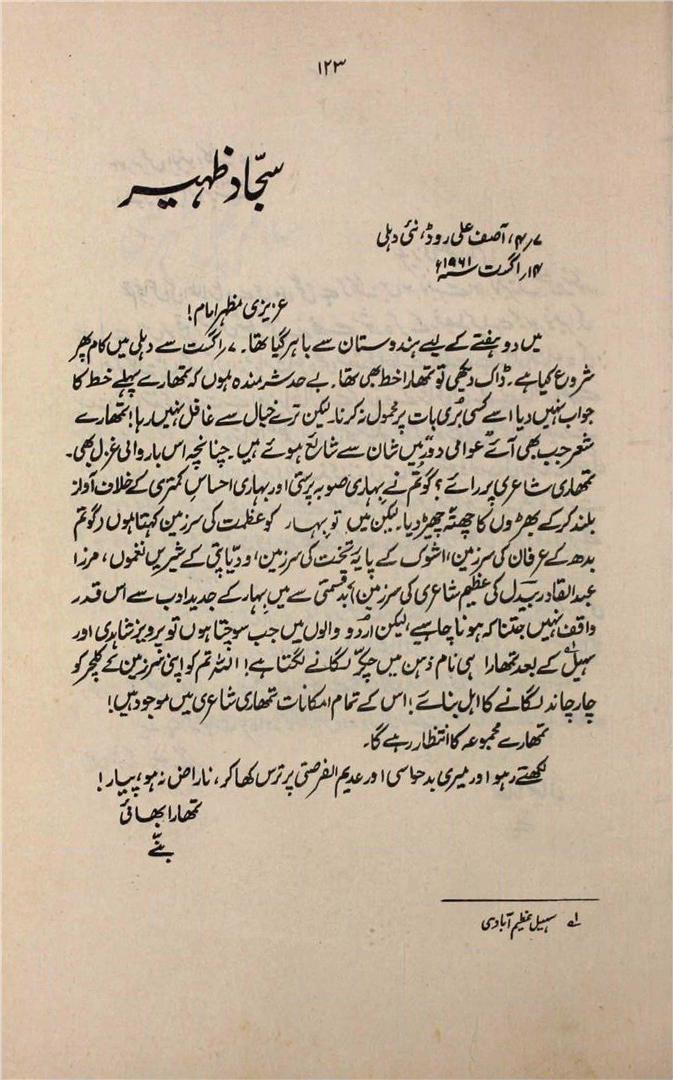 ۱۲۳
سجّاد ظہیر
۴/۷، آصف علی روڈ، نئی دہلی
۱۴ر اگست سنہ ۱۹۶۱ء
عزیزی مظہر امام!
میں دو ہفتے کے لیے ہندوستان سے باہر گیا تھا۔ ۷ر اگست سے دہلی میں کام پھر
شروع کیا ہے۔ ڈاک دیکھی تو تمھارا خط بھی تھا۔ بے حد شرمندہ ہوں کہ تمھارے پہلے خط کا
جواب نہیں دیا، اسے کسی بُری بات پر محمول نہ کرنا۔ لیکن ترے خیال سے غافل نہیں رہا! تمھارے
شعر جب بھی آئے عوامی دور میں شان سے شائع ہوئے ہیں۔ چنانچہ اس بار والی غزل بھی۔
تمھاری شاعری پر رائے؟ گو تم نے بہاری صوبہ پرستی اور بہاری احساسِ کمتری کے خلاف آواز
بلند کر کے بھڑوں کا چھتّہ چھیڑ دیا۔ لیکن میں تو بہار کو عظمت کی سرزمین کہتا ہوں (گوتم
بدھ کے عرفان کی سرزمین، اشوک کے پایۂ تخت کی سرزمین، ودیاپتی کے شیریں نغموں، مرزا
عبدالقادر بیدل کی عظیم شاعری کی سرزمین) بدقسمتی سے میں بہار کے جدید ادب سے اس قدر
واقف نہیں جتنا کہ ہونا چاہیے، لیکن اردو والوں میں جب سوچتا ہوں تو پرویز شاہدی اور
سہیلؔ کے بعد تمھارا ہی نام ذہن میں چکّر لگانے لگتا ہے! اللہ تم کو اپنی سرزمین کے کلچر کو
چار چاند لگانے کا اہل بنائے! اس کے تمام امکانات تمھاری شاعری میں موجود ہیں!
تمھارے مجموعہ کا انتظار رہے گا۔
لکھتے رہو اور میری بدحواسی اور عدیم الفرصتی پر ترس کھا کر، ناراض نہ ہو، پیار!
تمھارا بھائی
بنّے
۱؎ سہیل عظیم آبادی